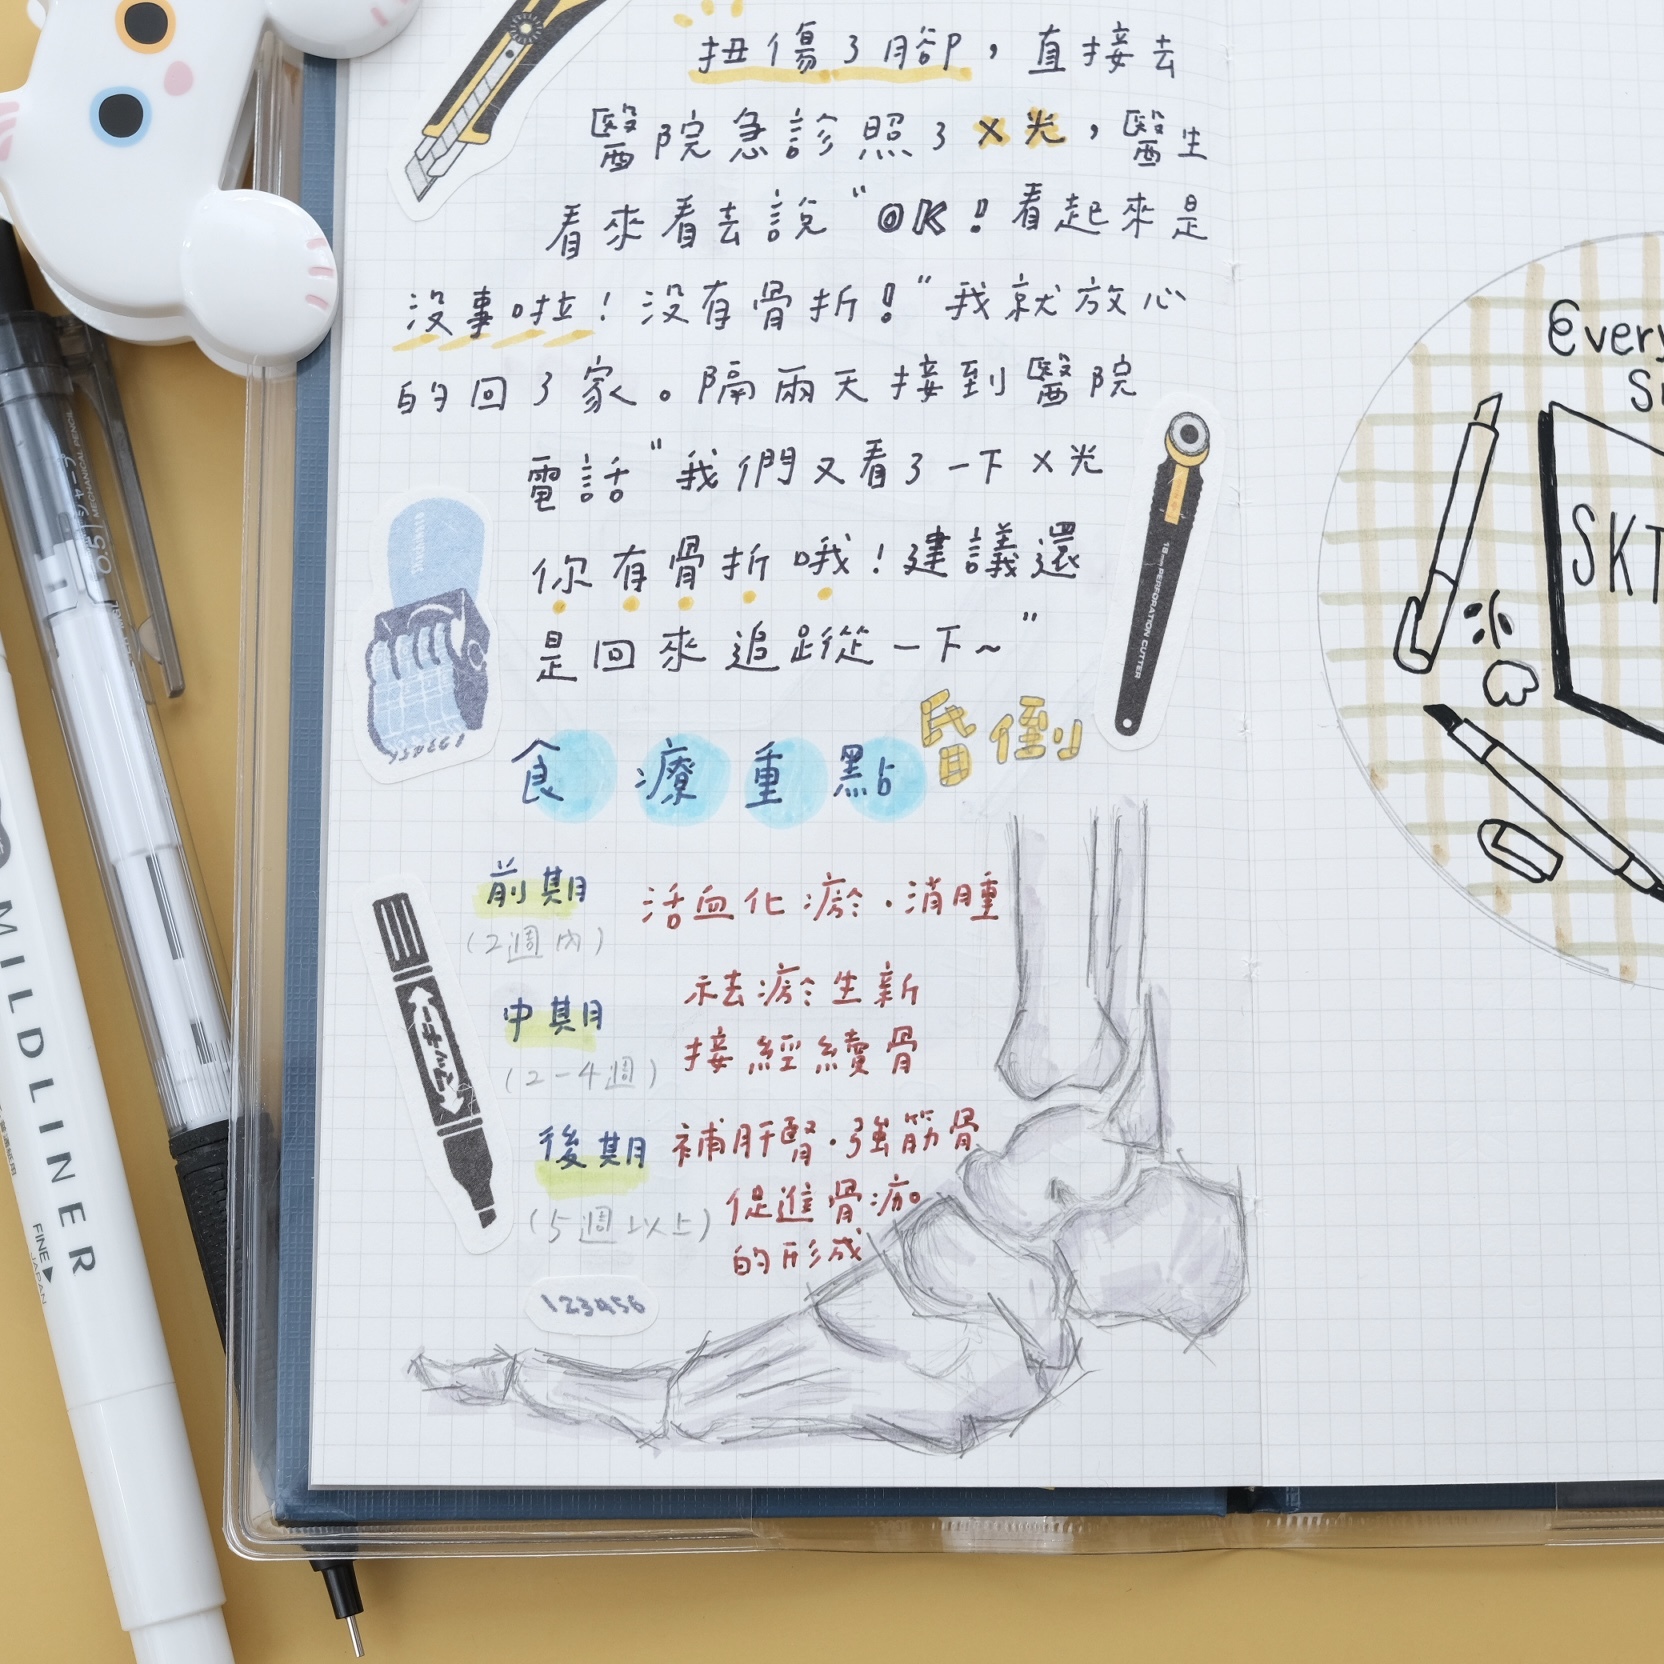 扭傷了腳，直接去
醫院急診照了X光，醫生
看來看去說“OK！看起來是
沒事啦！沒有骨折！”我就放心
的回了家。隔兩天接到醫院
電話“我們又看了一下X光
你有骨折哦！建議還
是回來追蹤一下~”
昏倒
食療重點
前期 活血化瘀．消腫
(2週內)
中期 祛瘀生新
(2-4週) 接經續骨
後期 補肝腎．強筋骨
(5週以上) 促進骨痂
的形成
123456
マッキー
18mm PERFORATION CUTTER
MILDLINER
FINE
JAPAN
0.5 シャープ
MECHANICAL PENCIL
Every
SKT